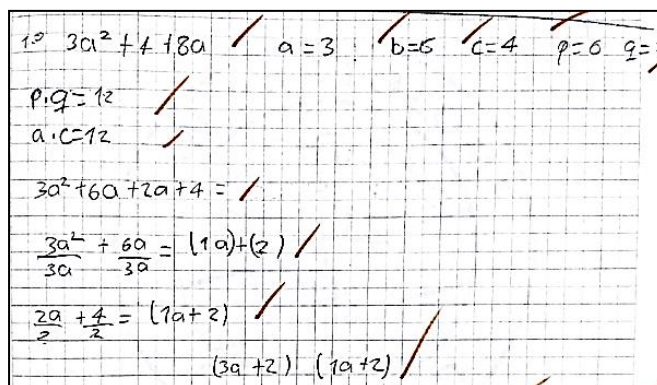 1.º 3a² + 4 + 8a a = 3 b=6 c=4 p=6 q=
p·q = 12
a·c=12
3a² + 6a + 2a + 4 =
3a²/3a + 6a/3a = (1a)+(2)
2a/2 + 4/2 = (1a+2)
(3a+2) (1a+2)